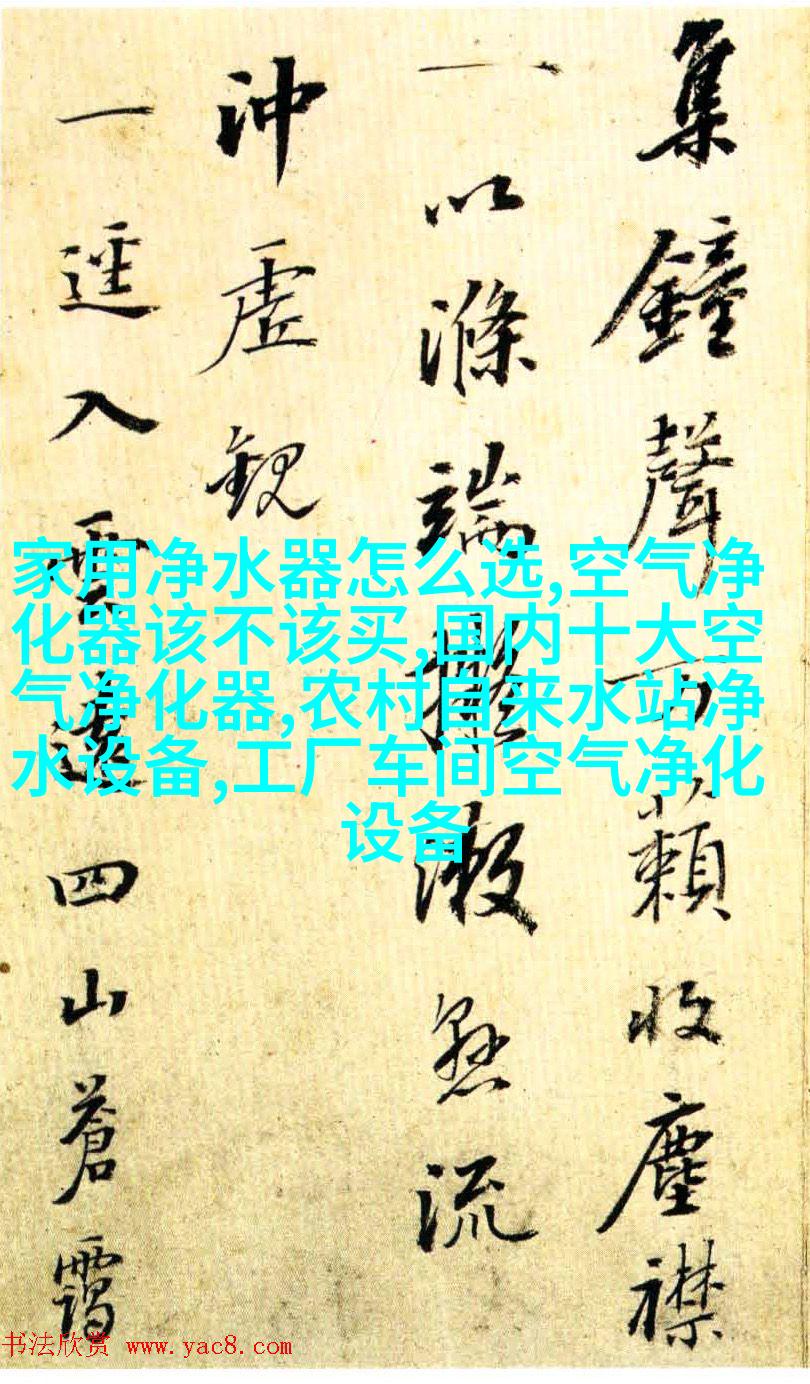 集鐘聲万籟收塵襟
一以滌端擬漱懸流
沖虛觀
一逕入雲邃四山蒼靄
家用净水器怎么选,空气净
化器该不该买,国内十大空
气净化器,农村自来水站净
水设备,工厂车间空气净化
设备
书法欣赏 www.yac8.com